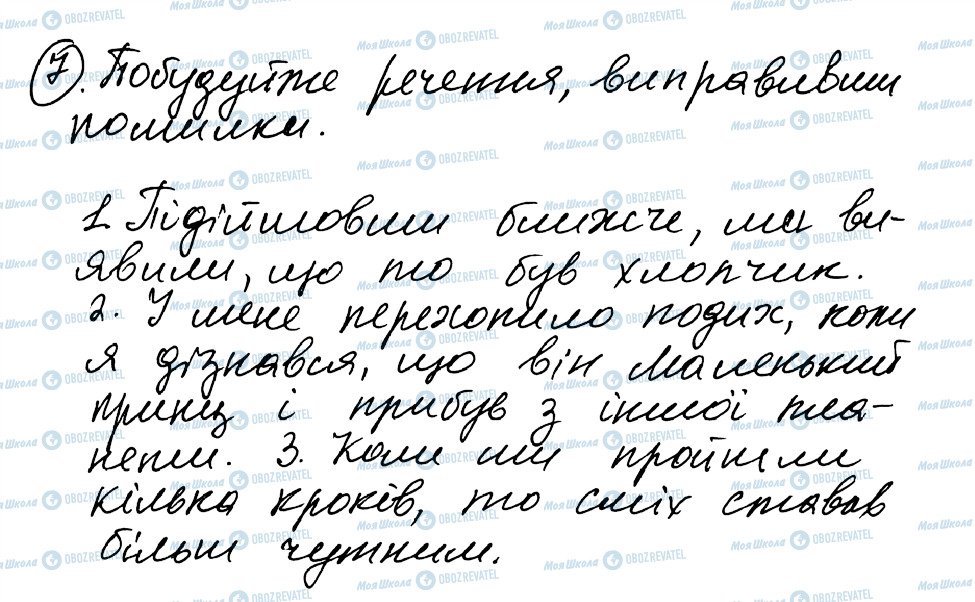 7. Побудуйте речення, виправивши
помилки.
1. Підійшовши ближче, ми ви-
явили, що то був хлопчик.
2. У мене перехопило подих, коли
я дізнався, що він Маленький
принц і прибув з іншої пла-
нети. 3. Коли ми пройшли
кілька кроків, то сміх ставав
більш чутним.
МояШкола OBOZREVATEL